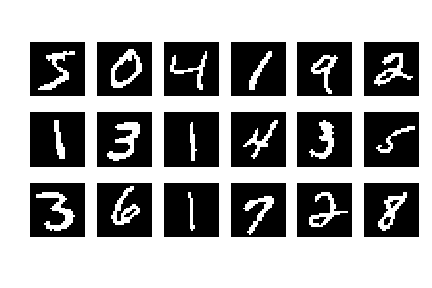 5 0 4 1 9 2
1 3 1 4 3 5
3 6 1 7 2 8